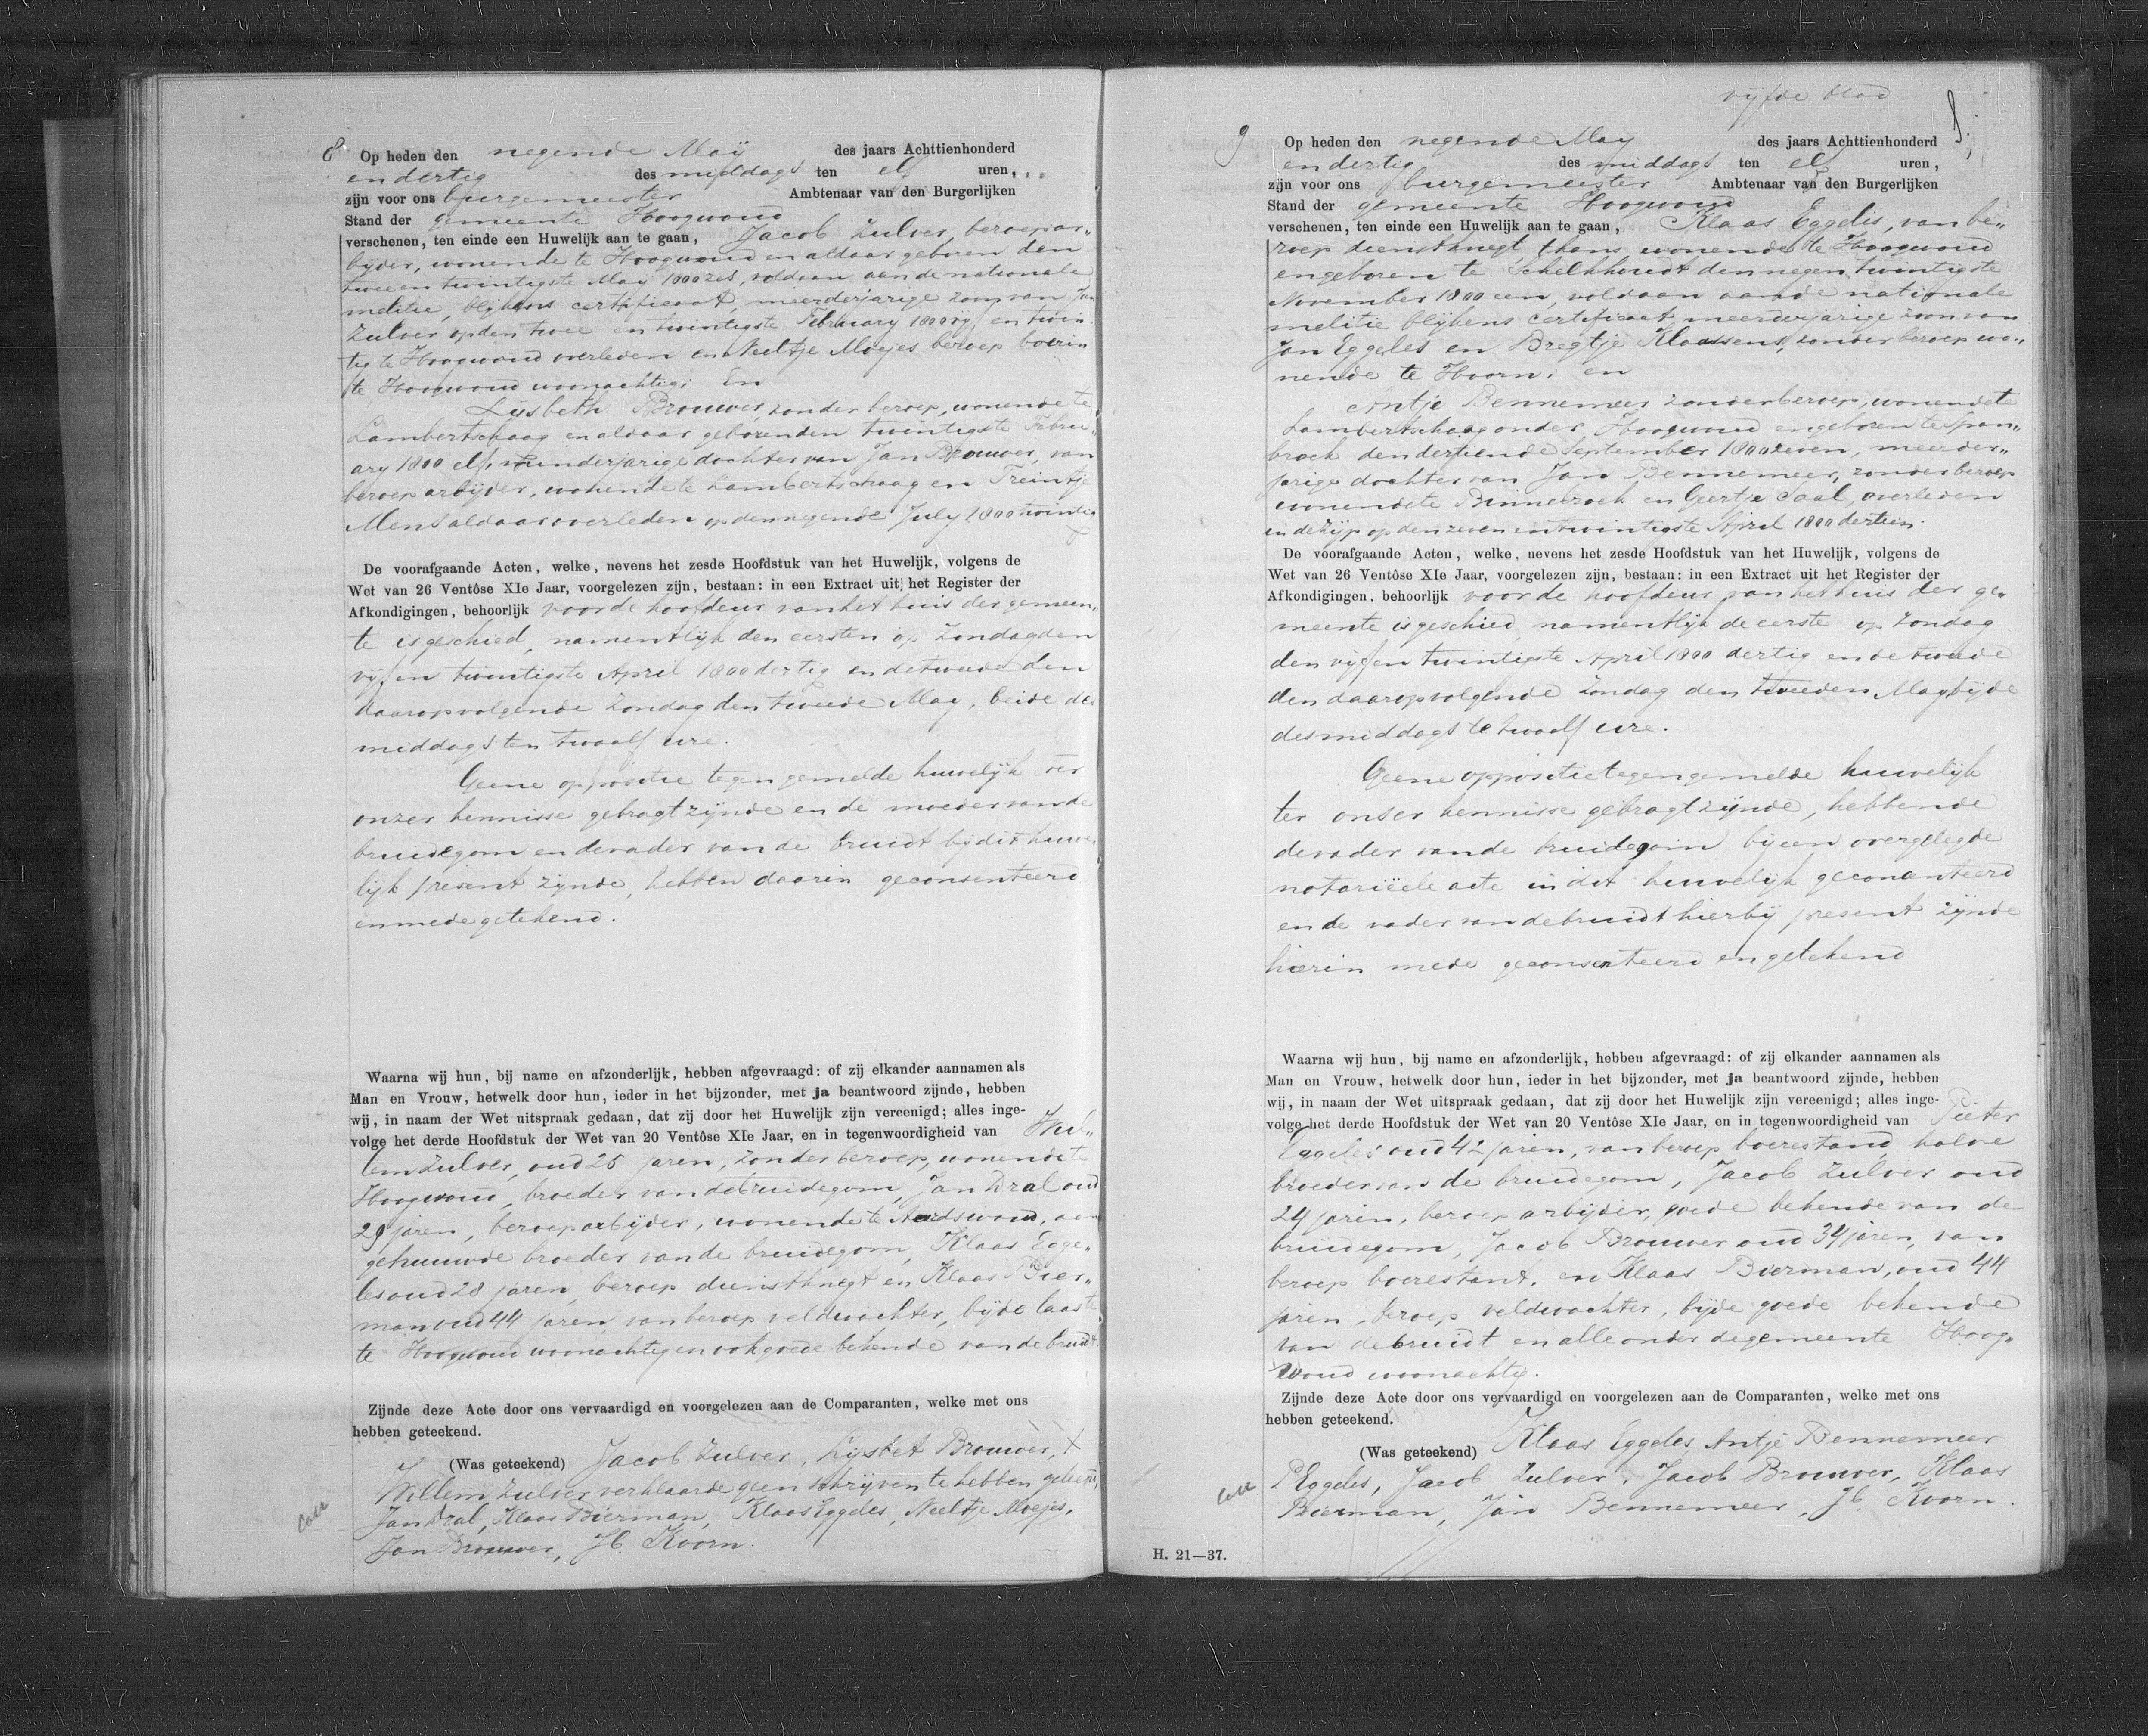 8 Op heden den negende Maij des jaars Achttienhonderd
en dertig des middags ten elf uren,
zijn voor ons burgemeester Ambtenaar van den Burgerlijken
Stand der gemeente Hoogwoud
verschenen, ten einde een Huwelijk aan te gaan, Jacob Zulver, beroep ar„
bijder, wonende te Hoogwoud en aldaar geboren den
twee en twintigste May 1800 zes, voldaan aan de nationale
melitie, blijkens certificaat, meerderjarige zoon van Jan
Zulver op den twee en twintigste February 1800 vyf en twin
tig te Hoogwoud overleden en Neeltje Moejes beroep boerin
te Hoogwoud woonachtig; En
Lijsbeth Brouwer, zonder beroep, wonende te
Lambertschaag en aldaar geboren den twintigste Febru„
ary 1800 elf, minderjarige dochter van Jan Brouwer, van
beroep arbijder, wonende te Lambertschaag en Treintje
Mens aldaar overleden op den negende July 1800 twintig
De voorafgaande Acten, welke, nevens het zesde Hoofdstuk van het Huwelijk, volgens de
Wet van 26 Ventôse XIe Jaar, voorgelezen zijn, bestaan: in een Extract uit het Register der
Afkondigingen, behoorlijk voor de hoofdeur van het huis der gemeen„
te is geschied, namentlijk den eersten op Zondag den
vijf en twintigste April 1800 dertig en de tweede den
daaropvolgende Zondag den tweede May, beide des
middags ten twaalf ure.
Geene oppositie tegen gemelde huwelijk ter
onzer kennisse gebragt zijnde en de moeder van de
bruidegom en de vader van de bruidt bij dit huwe
lijk present zijnde, hebben daarin geconsenteerd
en mede getekend.
Waarna wij hun, bij name en afzonderlijk, hebben afgevraagd: of zij elkander aannamen als
Man en Vrouw, hetwelk door hun, ieder in het bijzonder, met ja beantwoord zijnde, hebben
wij, in naam der Wet uitspraak gedaan, dat zij door het Huwelijk zijn vereenigd; alles inge-
volge het derde Hoofdstuk der Wet van 20 Ventôse XIe Jaar, en in tegenwoordigheid van Wil„
lem Zulver, oud 25 jaren, zonder beroep, wonende te
Hoogwoud, broeder van de bruidegom, Jan Dral oud
29 jaren, beroep arbijder, wonende te Aardswoud, aan
gehuwde broeder van de bruidegom, Klaas Egge„
les oud 28 jaren, beroep dienstknegt en Klaas Bier„
man oud 44 jaren, van beroep veldwachter, bijde laaste
te Hoogwoud woonachtig en ook goede bekende van de bruidt
Zijnde deze Acte door ons vervaardigd en voorgelezen aan de Comparanten, welke met ons
hebben geteekend.
(Was geteekend) Jacob Zulver, Lijsbet Brouwer, X
Willem Zulver verklaarde geen schrijven te hebben geleerd,
Jan Dral, Klaas Bierman, Klaas Eggeles, Neeltje Moejes,
Jan Brouwer, Jb. Koorn.
vijfde blad
9 Op heden den negende May des jaars Achttienhonderd
en dertig des middags ten elf uren,
zijn voor ons burgemeester Ambtenaar van den Burgerlijken
Stand der gemeente Hoogwoud
verschenen, ten einde een Huwelijk aan te gaan, Klaas Eggeles, van be„
roep dienstknegt thans wonende te Hoogwoud
en geboren te Schelkhoudt den negen twintigste
November 1800 een, voldaan aan de nationale
melitie blijkens certificaat meerderjarige zoon van
Jan Eggeles en Bregtje Klaassens, zonder beroep wo„
nende te Hoorn; en
Antje Bennemeer zonder beroep, wonende te
Lambertschaag onder Hoogwoud en geboren te Span„
broek den dertiende September 1800 zeven, meerder„
jarige dochter van Jan Bennemeer, zonder beroep
wonende te Binnebroek en Geertje Saal, overleden
in de Zijp op den zeven en twintigste April 1800 dertien.
De voorafgaande Acten, welke, nevens het zesde Hoofdstuk van het Huwelijk, volgens de
Wet van 26 Ventôse XIe Jaar, voorgelezen zijn, bestaan: in een Extract uit het Register der
Afkondigingen, behoorlijk voor de hoofdeur van het huis der ge„
meente is geschied, namentlijk de eerste op Zondag
den vijf en twintigste April 1800 dertig en de tweede
den daaropvolgende Zondag den tweeden May bijde
des middags te twaalf ure.
Geene oppositie tegen gemelde huwelijk
ter onser kennisse gebragt zijnde, hebbende
de vader van de bruidegom bij een overgelegde
notariëele acte in dit huwelijk geconsenteerd
en de vader van de bruidt hierbij present zijnde
hierin mede geconsenteerd en getekend
Waarna wij hun, bij name en afzonderlijk, hebben afgevraagd: of zij elkander aannamen als
Man en Vrouw, hetwelk door hun, ieder in het bijzonder, met ja beantwoord zijnde, hebben
wij, in naam der Wet uitspraak gedaan, dat zij door het Huwelijk zijn vereenigd; alles inge-
volge het derde Hoofdstuk der Wet van 20 Ventôse XIe Jaar, en in tegenwoordigheid van Pieter
Eggeles oud 42 jaren, van beroep boerestand, halve
broeder van de bruidegom, Jacob Zulver oud
24 jaren, beroep arbijder, goede bekende van de
bruidegom, Jacob Brouwer oud 34 jaren, van
beroep boerestant, en Klaas Bierman, oud 44
jaren, beroep veldwachter, bijde goede bekende
van de bruidt en alle onder de gemeente Hoog„
woud woonachtig.
Zijnde deze Acte door ons vervaardigd en voorgelezen aan de Comparanten, welke met ons
hebben geteekend.
(Was geteekend) Klaas Eggeles, Antje Bennemeer
P Eggeles, Jacob Zulver, Jacob Brouwer, Klaas
Bierman, Jan Bennemeer, Jb. Koorn.
H. 21—37.